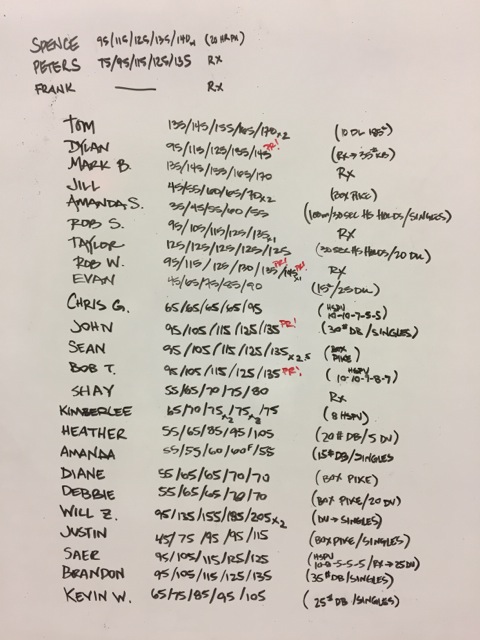 SPENCE 95/115/125/135/140 (20 HRPU)
PETERS 75/95/115/125/135 RX
FRANK —— RX
TOM 135/145/155/165/170x2 (10 DL 185#)
DYLAN 95/115/125/135/145 PR! (RX → 35# KB)
MARK B. 135/145/155/165/170 RX
JILL 45/55/60/65/70x2 (BOX PIKE)
AMANDA S. 35/45/55/60/55 (100m/30SEC HS HOLDS/SINGLES)
ROB S. 95/105/115/125/135x1 RX
TAYLOR 125/125/125/125/125 (30SEC HS HOLDS/20 DU)
ROB W. 95/115/125/130/135 PR!/145x1 PR! RX
EVAN 45/65/75/85/90 (15#/25 DU)
CHRIS G. 65/65/65/65/95 (HSPU 10-10-7-5-5)
JOHN 95/105/115/125/135 PR! (30# DB/SINGLES)
SEAN 95/105/115/125/135x2.5 (BOX PIKE)
BOB T. 95/105/115/125/135 PR! (HSPU 10-10-7-8-7)
SHAY 55/65/70/75/80 RX
KIMBERLEE 65/70/75x2/75x2/75 (8 HSPU)
HEATHER 55/65/85/95/105 (20# DB/5 DU)
AMANDA 55/55/60/60F/55 (15# DB/SINGLES
DIANE 55/65/65/70/70 (BOX PIKE)
DEBBIE 55/65/65/70/70 (BOX PIKE/20 DU)
WILL Z. 95/135/155/185/205x2 (DU → SINGLES)
JUSTIN 45/75/95/95/115 (BOX PIKE/SINGLES)
SAER 95/105/115/125/125 (HSPU 10-8-5-5-5/RX → 25DU)
BRANDON 95/105/115/125/135 (35# DB/SINGLES)
KEVIN W. 65/75/85/95/105 (25# DB/SINGLES)